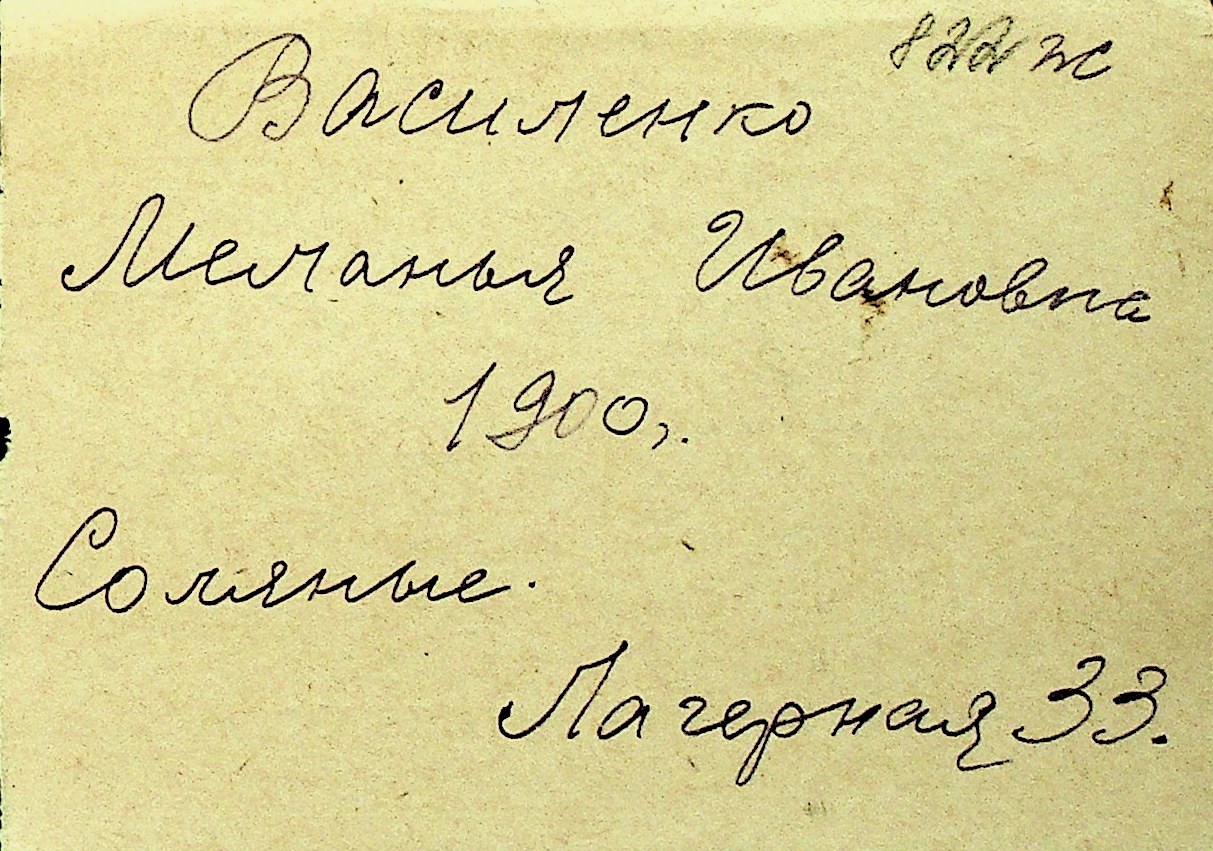 822 ж
Василенко
Меланья Ивановна
1900г.
Соляные.
Лагерная 33.